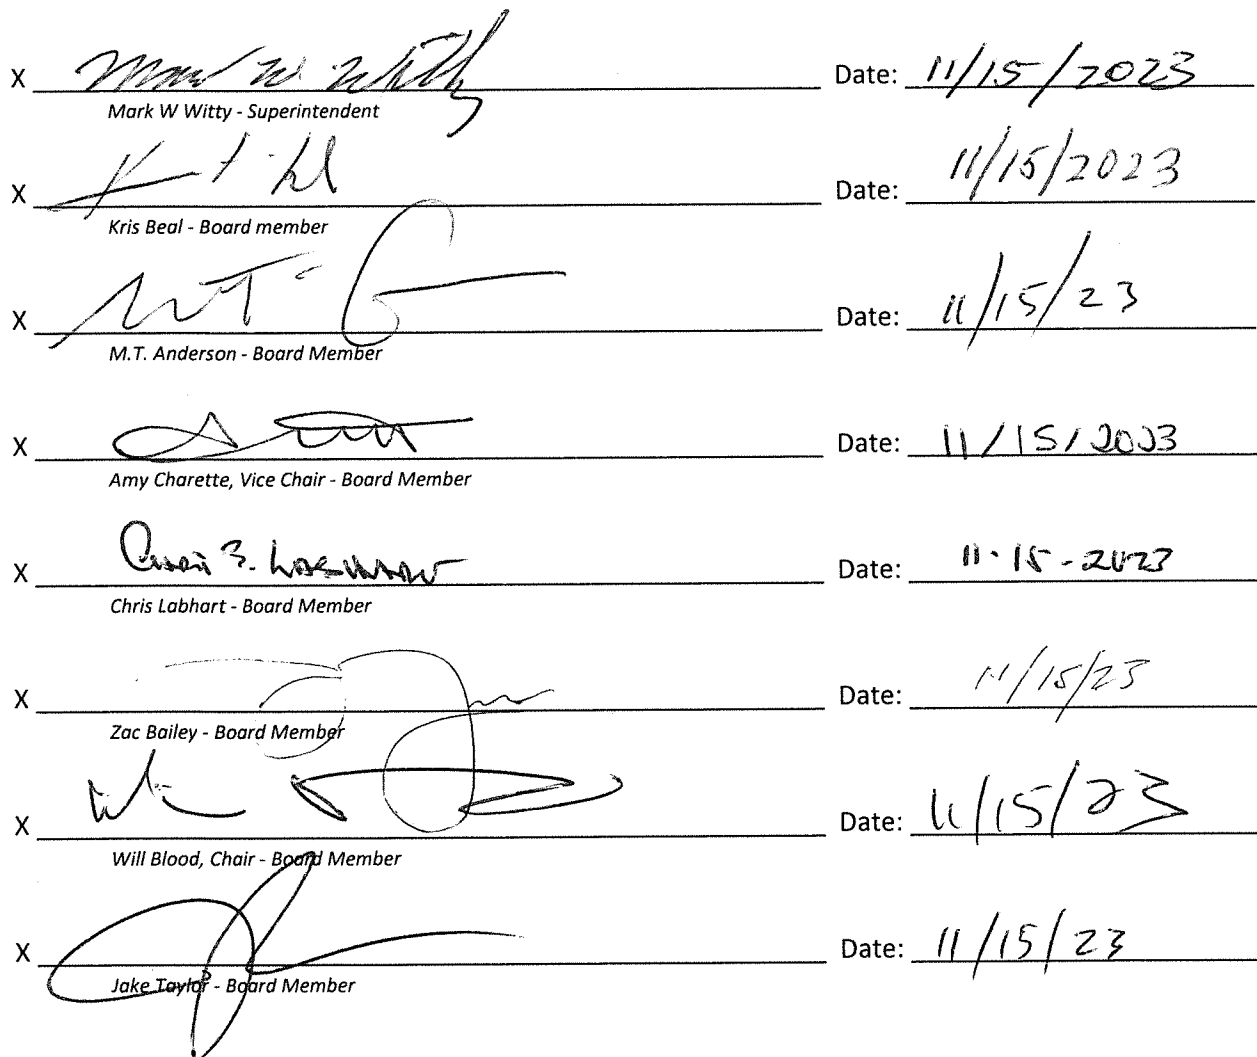 X Mark W Witty Date: 11/15/2023
Mark W Witty - Superintendent
X Date: 11/15/2023
Kris Beal - Board member
X Date: 11/15/23
M.T. Anderson - Board Member
X Date: 11/15/2023
Amy Charette, Vice Chair - Board Member
X Date: 11-15-2023
Chris Labhart - Board Member
X Date: 11/15/23
Zac Bailey - Board Member
X Date: 11/15/23
Will Blood, Chair - Board Member
X Date: 11/15/23
Jake Taylor - Board Member